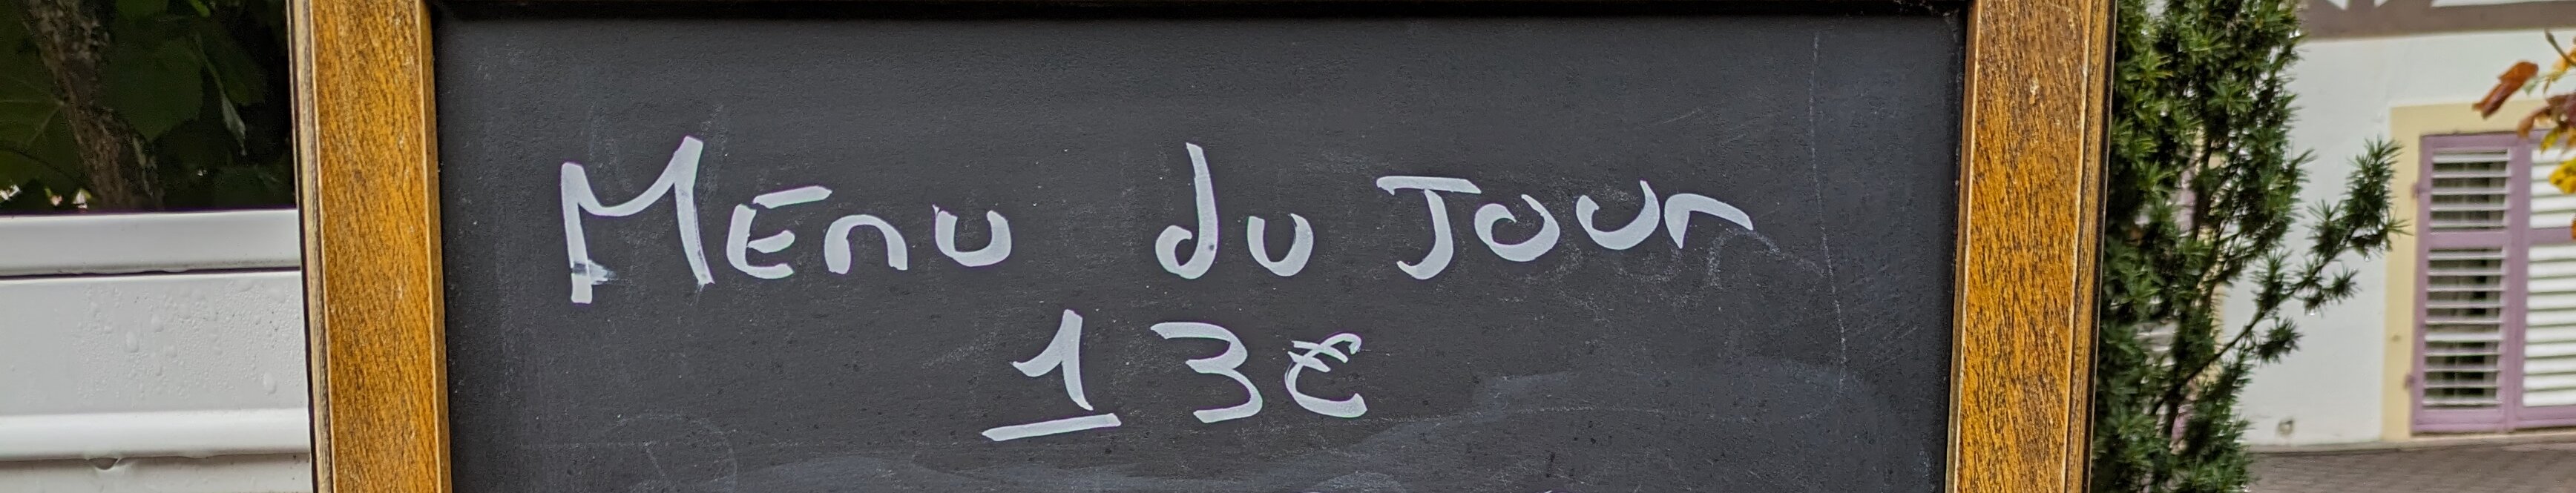 Menu du Jour
13€